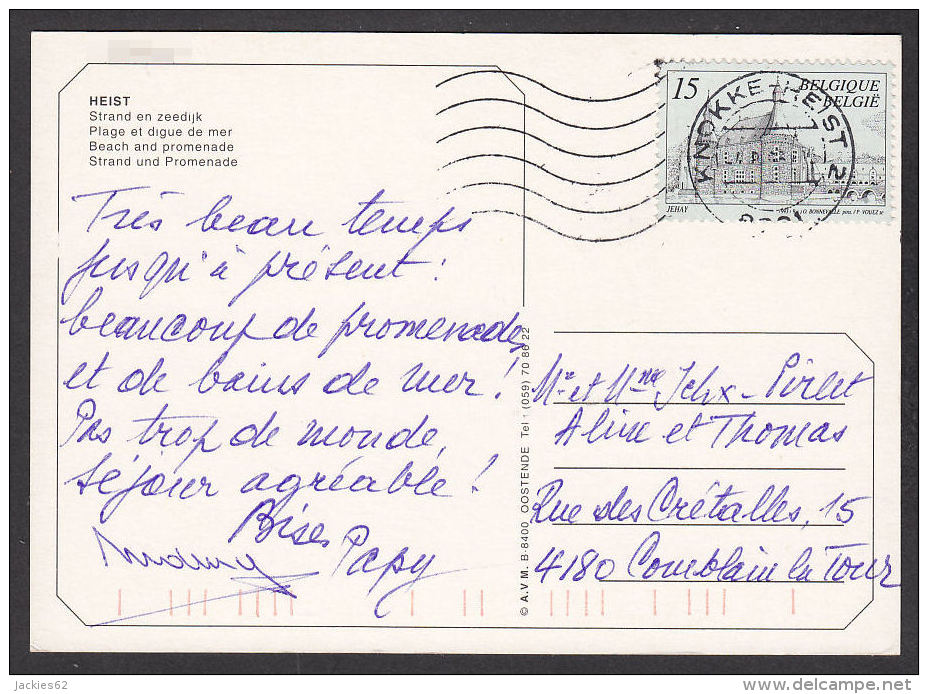 HEIST
Strand en zeedijk
Plage et digue de mer
Beach and promenade
Strand und Promenade
Très beau temps
jusqu'à présent :
beaucoup de promenades
et de bains de mer !
Pas trop de monde,
séjour agréable !
Bises
Papy
© A.V.M. B-8400 OOSTENDE Tel : (059) 70 86 22
15 BELGIQUE
BELGIË
KNOKKE-HEIST 2
JEHAY
Mr et Mme Pirlet
Aline et Thomas
Rue des Crétalles, 15
4180 Comblain la Tour
jackies62
delcampe.net